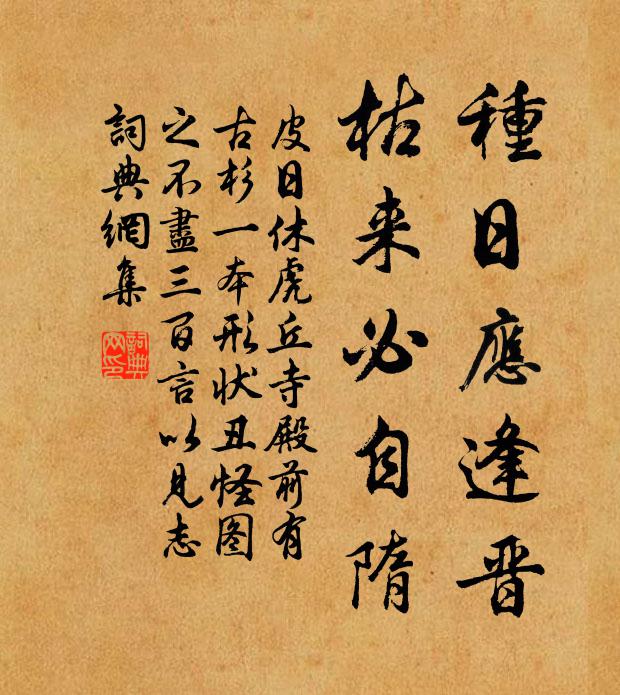 種日應逢晋
枯来必自隋
皮日休虎丘寺殿前有
古杉一本形状丑怪图
之不盡三百言以見志
詞典網集
詞典
网印